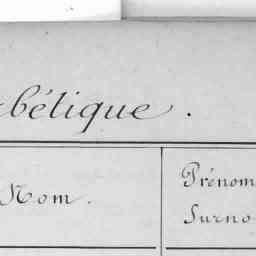 bétique.
Nom.
Prénom
Surno